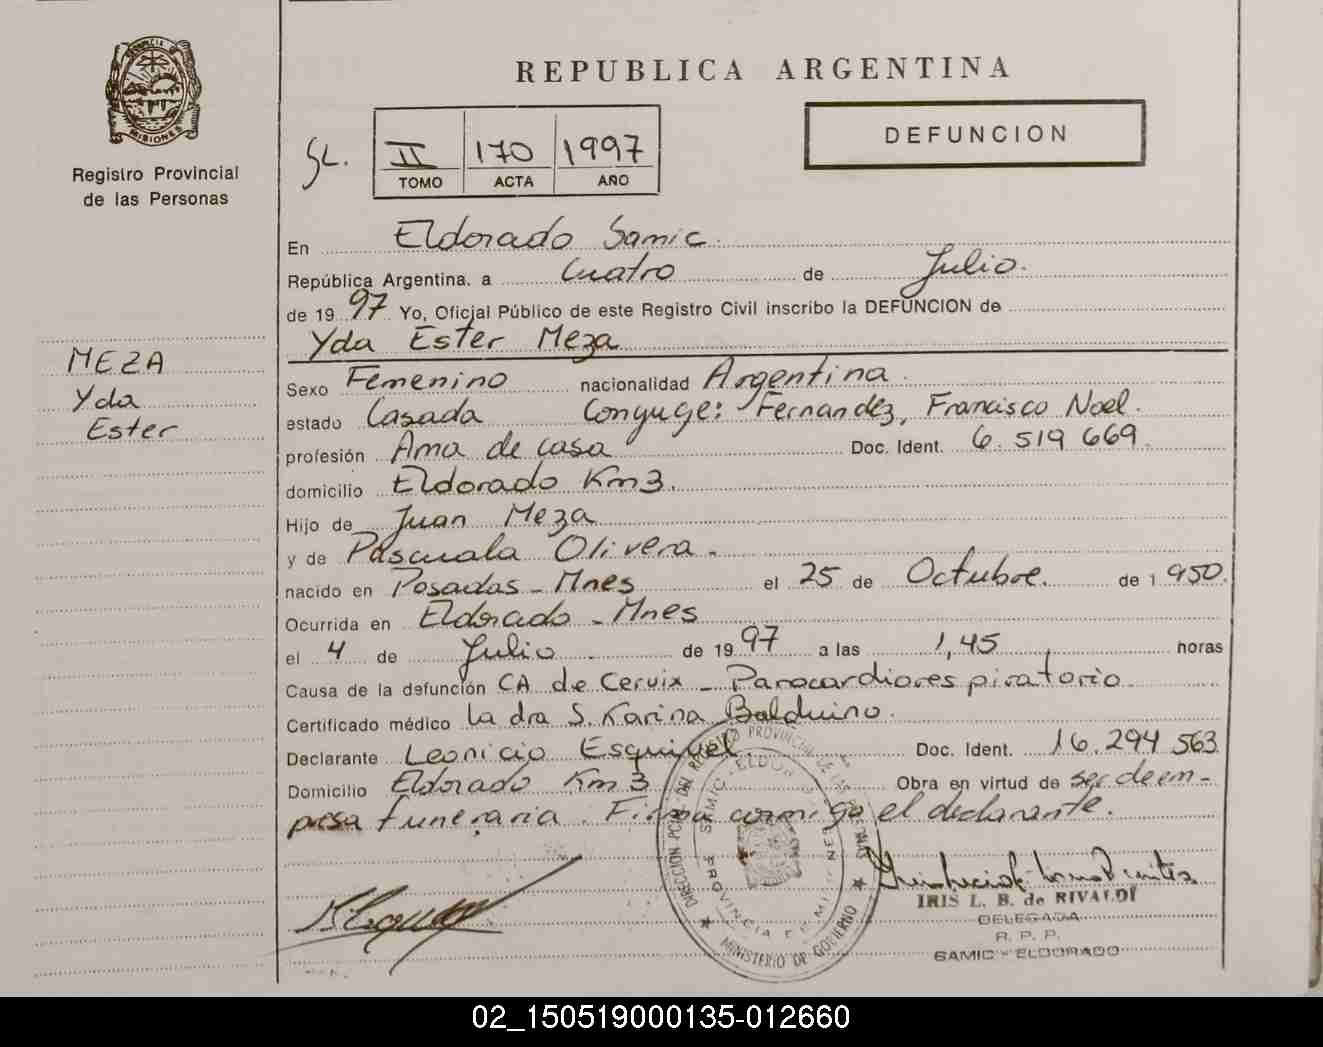 PROVINCIA DE
MISIONES
Registro Provincial
de las Personas
REPUBLICA ARGENTINA
DEFUNCION
SL. II 170 1997
TOMO ACTA AÑO
En Eldorado Samic.
República Argentina, a Cuatro de Julio.
de 1997 Yo, Oficial Público de este Registro Civil inscribo la DEFUNCION de
Yda Ester Meza
MEZA
Yda
Ester
Sexo Femenino nacionalidad Argentina.
estado Casada Conyuge: Fernandez, Francisco Noel.
profesión Ama de casa Doc. Ident. 6.519669.
domicilio Eldorado Km3.
Hijo de Juan Meza
y de Pascuala Olivera.
nacido en Posadas - Mnes el 25 de Octubre. de 1950.
Ocurrida en Eldorado - Mnes
el 4 de Julio de 1997 a las 1,45 horas
Causa de la defunción CA de Cervix - Parocardiorespiratorio
Certificado médico la dra S. Karina Balduino.
Declarante Leonicio Esquivel. Doc. Ident. 16.294563
Domicilio Eldorado Km3 Obra en virtud de ser de em-
presa funeraria. Firma conmigo el declarante.
DIRECCION PCIAL. DEL REGISTRO PROVINCIAL DE LAS PERSONAS
SAMIC - ELDORADO
PROVINCIA DE MISIONES
MINISTERIO DE GOBIERNO
IRIS L. B. de RIVALDI
DELEGADA
R. P. P.
SAMIC - ELDORADO
02_150519000135-012660